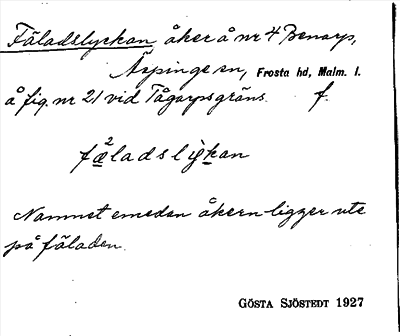 Fäladslyckan åker å nr 4 Benarp,
Äspinge sn, Frosta hd, Malm. l.
å fig. nr 21 vid Tågarpsgräns. f.
fæ²ladsliỳkan
Namnet emedan åkern ligger ute
på fäladen.
GÖSTA SJÖSTEDT 1927